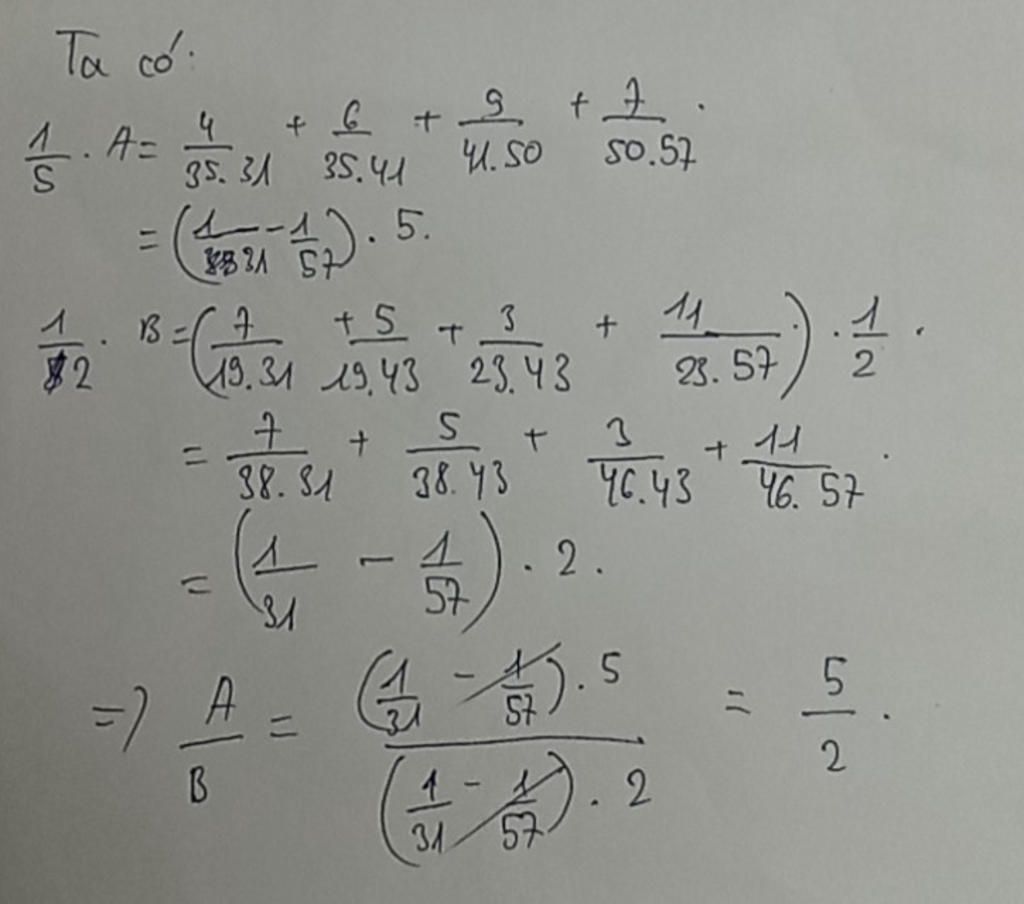 Ta có:
1/5 . A = 4/35.31 + 6/35.41 + 9/41.50 + 7/50.57 .
= (1/31 - 1/57) . 5.
1/2 . B = (7/19.31 + 5/19.43 + 3/23.43 + 11/23.57) . 1/2 .
= 7/38.31 + 5/38.43 + 3/46.43 + 11/46.57 .
= (1/31 - 1/57) . 2 .
=> A/B = (1/31 - 1/57) . 5 / (1/31 - 1/57) . 2 = 5/2 .